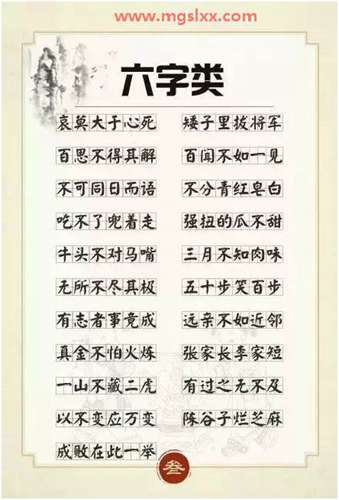 www.mgslxx.com
六字类
哀莫大于心死 矮子里拔将军
百思不得其解 百闻不如一见
不可同日而语 不分青红皂白
吃不了兜着走 强扭的瓜不甜
牛头不对马嘴 三月不知肉味
无所不尽其极 五十步笑百步
有志者事竟成 远亲不如近邻
真金不怕火炼 张家长李家短
一山不藏二虎 有过之无不及
以不变应万变 陈谷子烂芝麻
成败在此一举
叁